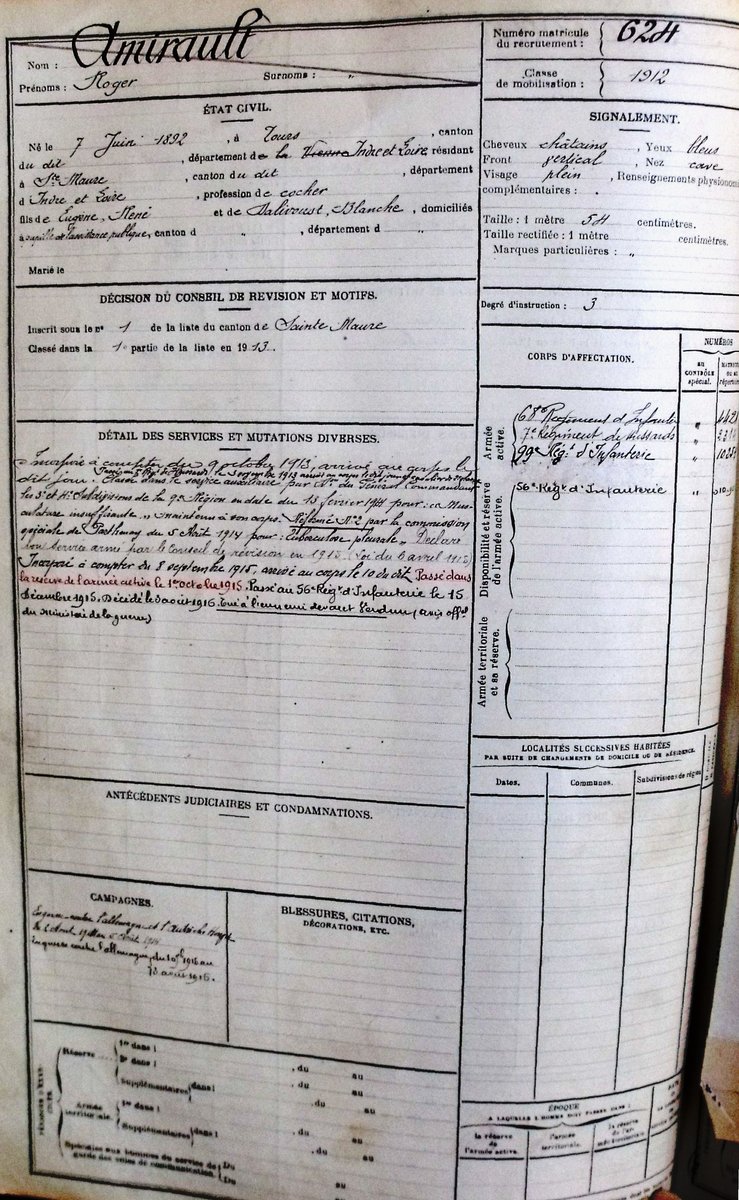 Nom : Amirault
Prénoms : Roger Surnoms : "
Numéro matricule du recrutement : 624
Classe de mobilisation : 1912
ÉTAT CIVIL.
Né le 7 Juin 1892, à Tours, canton
du dit, département de la Vienne Indre et Loire, résidant
à Ste Maure, canton du dit, département
d'Indre et Loire, profession de cocher
fils de Eugène, René et de Blanche, domiciliés
à pupille de l'assistance publique, canton d ", département d "
Marié le
SIGNALEMENT.
Cheveux châtains, Yeux bleus
Front vertical, Nez cave
Visage plein, Renseignements physionom
complémentaires :
Taille : 1 mètre 54 centimètres.
Taille rectifiée : 1 mètre centimètres.
Marques particulières : "
Degré d'instruction : 3
DÉCISION DU CONSEIL DE REVISION ET MOTIFS.
Inscrit sous le no 1 de la liste du canton de Sainte Maure
Classé dans la 1e partie de la liste en 1913.
DÉTAIL DES SERVICES ET MUTATIONS DIVERSES.
Incorporé à compter du 9 octobre 1913, arrivé au corps le
dit jour. Classé dans le service auxiliaire par du Général Commandant
les 3e et 4e Subdivisions de la 9e Région en date du 13 février 1914 pour :
culature insuffisante, maintenu à son corps. Réformé No 2 par la commission
spéciale de Parthenay du 5 Août 1914 pour : Tuberculose pleurale. Déclaré
bon service armé par le Conseil de révision en 1915 (Loi du 6 avril 1915)
Incorporé à compter du 8 septembre 1915, arrivé au corps le 10 du dit. Passé dans
la réserve de l'armée active le 1er octobre 1915. Passé au 56e Régt d'Infanterie le 15
décembre 1915. Décédé le août 1916. Tué à l'ennemi devant Verdun (avis offel
du Ministère de la guerre)
CORPS D'AFFECTATION.
NUMÉROS
au CONTRÔLE spécial.
Armée active.
68e Régiment d'Infanterie
7e Régiment de hussards
99e Régt d'Infanterie
Disponibilité et réserve de l'armée active.
56e Régt d'Infanterie
Armée territoriale et sa réserve.
LOCALITÉS SUCCESSIVES HABITÉES
PAR SUITE DE CHANGEMENTS DE DOMICILE OU DE RÉSIDENCE.
Dates. Communes. Subdivisions de région
ANTÉCÉDENTS JUDICIAIRES ET CONDAMNATIONS.
CAMPAGNES.
contre l'Allemagne et l'Autriche
août 1914
En guerre contre l'Allemagne, du 1915 au
août 1916.
BLESSURES, CITATIONS,
DÉCORATIONS, ETC.
Réserve 1re dans l , du au
2e dans l , du au
Supplémentaires dans l , du au
Armée territoriale 1re dans l , du au
Supplémentaires dans l , du au
Spéciales aux hommes du service de
garde des voies de communication. Du au
Du au
ÉPOQUE
A LAQUELLE L'HOMME DOIT PASSER DANS :
la réserve de l'armée active. l'armée territoriale. la réserve de l'armée territoriale.